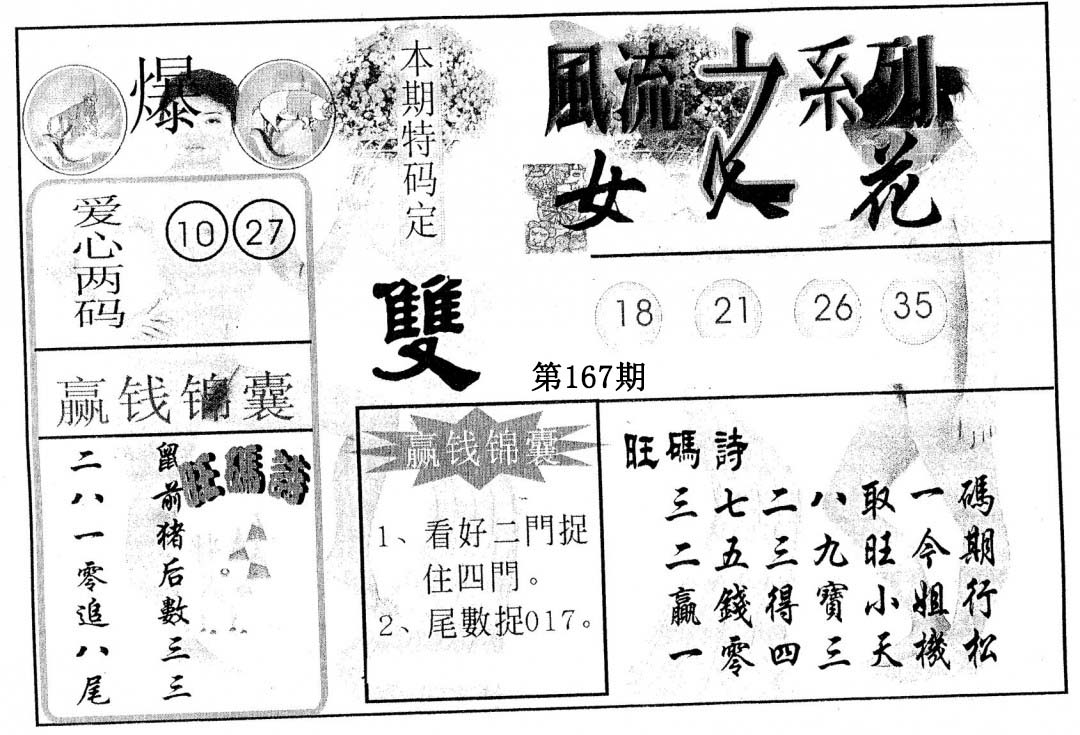 爆
本期特码定
雙
風流之系列
女 花
爱心两码
10 27
18 21 26 35
第167期
赢钱锦囊
旺碼詩
鼠前猪后數三三
二八一零追八尾
赢钱锦囊
1、看好二門捉
住四門。
2、尾數捉017。
旺碼詩
三七二八取一碼
二五三九旺今期
贏錢得寶小姐行
一零四三天機松